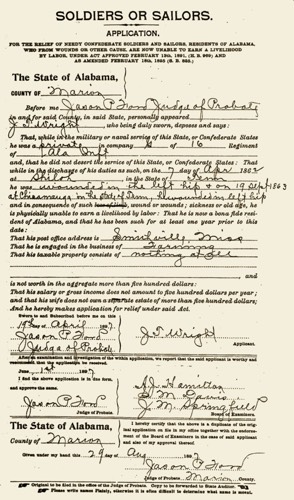 SOLDIERS OR SAILORS.
APPLICATION.
FOR THE RELIEF OF NEEDY CONFEDERATE SOLDIERS AND SAILORS, RESIDENTS OF ALABAMA,
WHO FROM WOUNDS OR OTHER CAUSE, ARE NOW UNABLE TO EARN A LIVELIHOOD
BY LABOR, UNDER ACT APPROVED FEBRUARY 13th, 1891, AND
AS AMENDED FEBRUARY 18th, 1895
The State of Alabama,
COUNTY OF Marion
Before me Jason P Ford Judge of Probate
in and for said County, in said State, personally appeared
J T Wright who being duly sworn, deposes and says:
That, while in the military or naval service of this State, or Confederate States
he was a private in company G of 16 Regiment of
Ala Inft
and, that he did not desert the service of this State, or Confederate States: That
while in the discharge of his duties as such, on the 7 day of Apr 1862
at Shiloh in the State of Tenn
he was wounded in the left hip & on 19 Sept 1863
at Chicamauga in the State of Tenn, wounded in left hip
and in consequence of such wound or wounds; sickness or old age, he
is physically unable to earn a livelihood by labor: That he is now a bona fide resi-
dent of Alabama, and that he has been such for at least one year prior to this
date:
That his post office address is Smithville Miss
That he is engaged in the business of Farming
That his taxable property consists of nothing at all
and is not worth in the aggregate more than five hundred dollars:
That his salary or gross income does not amount to five hundred dollars per year;
and that his wife does not own a separate estate of more than five hundred dollars:
And he hereby makes application for relief under said Act.
Sworn to and Subscribed before me this
19th day of April 1897
Jason P Ford
Judge of Probate
J T Wright
Applicant.
After an examination and investigation of the within application, we report that the said applicant is worthy and
June 1st 1897
I find the above application is in due form,
and approve the same.
Jason P Ford
Judge of Probate.
A. J. Hamilton
S. M. Davis
J. M. Springfield
Board of Examiners.
The State of Alabama,
County of Marion
I hereby certify that the above is a duplicate of the orig-
inal application on file in my office together with the endorse-
ment of the Board of Examiners in the case of said applicant
and also of my approval thereof.
Given under my hand this 29 day of Aug 189
Jason P Ford
Judge of Probate, Marion County.
Original to be filed in the office of the Judge of Probate. Copy to be forwarded to State Auditor.
Please write Names Plainly, otherwise it is often difficult to determine what name is meant.